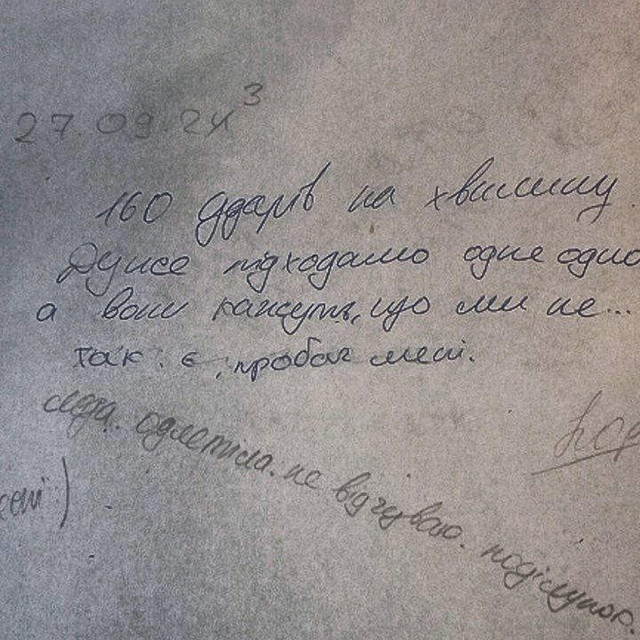 27.09.2
160 ударів на хвилину.
Дуже підходимо одне одно
а вони кажуть, що ми не...
так. є, пробач мені.
одлетіла. не відчуваю. поцілунок.